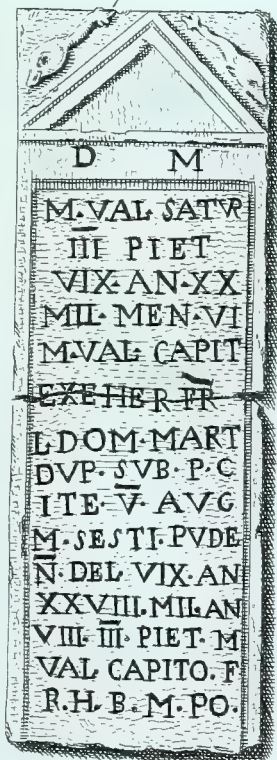 D M
M·VAL·SATVR
I̅I̅I̅ PIET
VIX·AN·XX
MIL·MEN·VI
M·VAL CAPIT
EXE HER FR
L·DOM·MART
DVP·SVB·P·C
ITE·V̅·AVG
M·SESTI·PVDE
N̅·DEL VIX·AN
XXVIII.MIL AN
VIII·I̅I̅I̅·PIET·M
VAL CAPITO.F
R.H.B.M.PO.